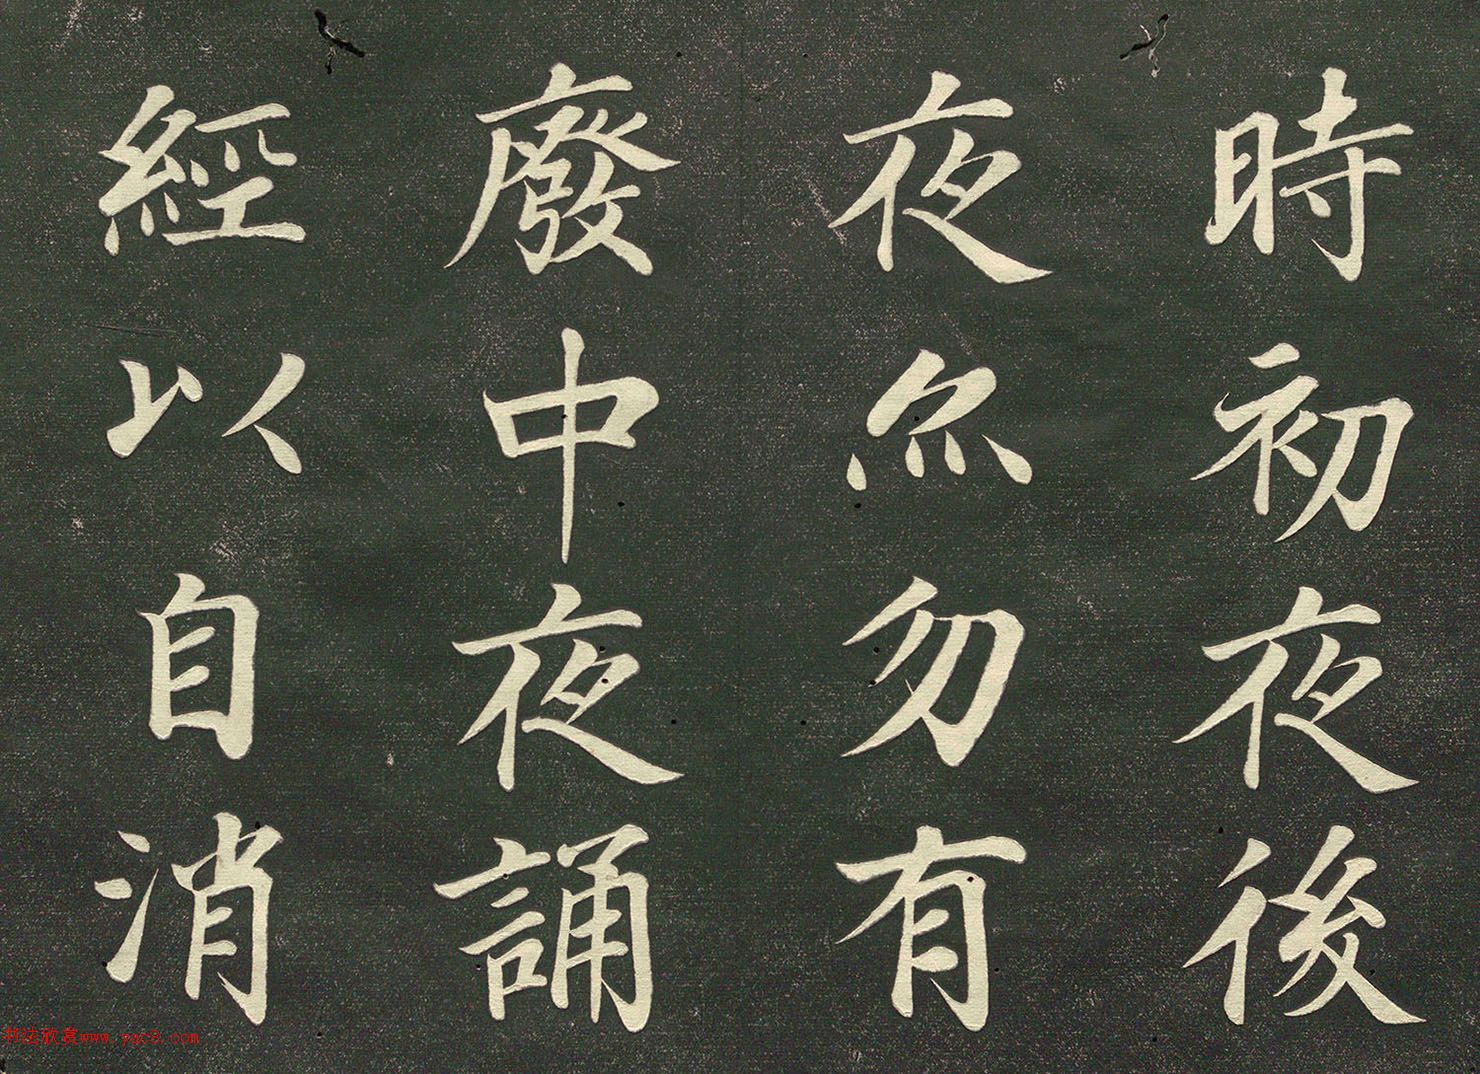 時初夜後
夜亦勿有
廢中夜誦
經以自消
书法欣赏www.yac8.com